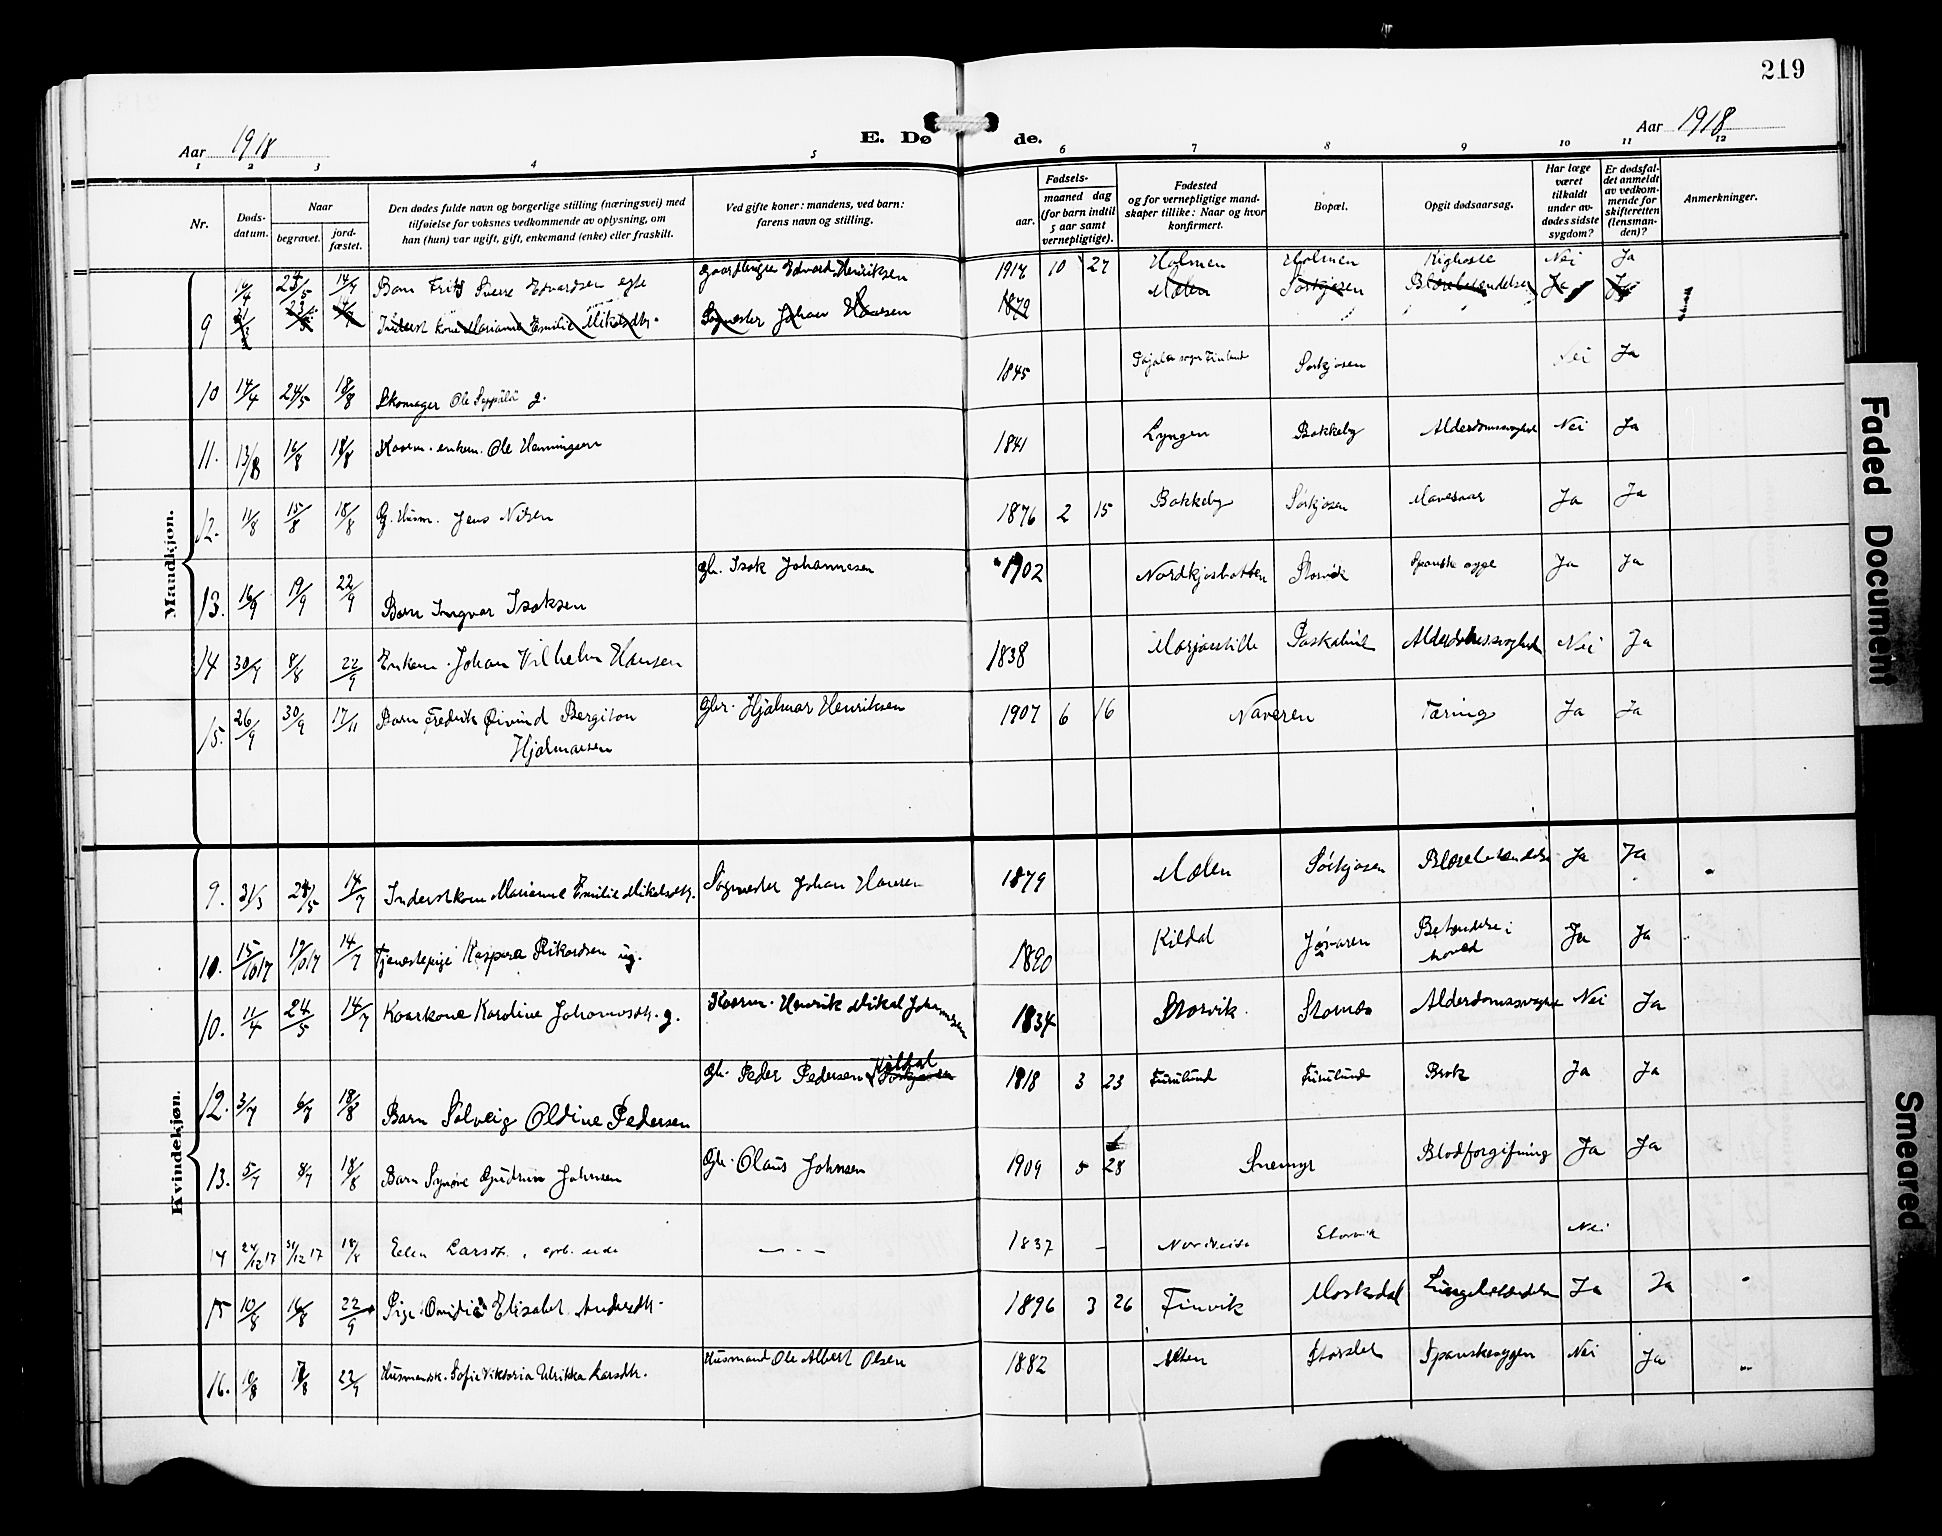 219
Aar 1918
E. Dø de.
Aar 1918
1 2 3 4 5 6 7 8 9 10 11 12
Nr.
Døds-
datum.
Naar
begravet.
jord-
fæstet.
Den dødes fulde navn og borgerlige stilling (næringsvei) med
tilføielse for voksnes vedkommende av oplysning, om
han (hun) var ugift, gift, enkemand (enke) eller fraskilt.
Ved gifte koner: mandens, ved barn:
farens navn og stilling.
Fødsels-
aar.
maaned dag
(for barn indtil
5 aar samt
vernepligtige).
Fødested
og for vernepligtige mand-
skaper tillike: Naar og hvor
konfirmert.
Bopæl.
Opgit dødsaarsag.
Har læge
været
tilkaldt
under av-
dødes sidste
sygdom?
Er dødsfal-
det anmeldt
av vedkom-
mende for
skifteretten
(lensman-
den)?
Anmerkninger.
Mandkjøn.
16/4 24/5 14/7 Barn Frits Sverre Edvardsen egte Edvard Henriksen 1917 10 27 Holmen Holmen Kighoste Nei Ja
9 31/3 23/5 14/7 Inderst kone Marianne Emilie Mikalsdtr. Søgmester Johan Hansen 1879 Molen Sørkjosen Blærebetændelse Ja Ja
10 14/4 24/5 18/8 Skomager Ole Seppälä g. 1845 sogn Finland Sørkjosen Nei Ja
11. 13/8 16/8 18/8 Kaarm. enkem. Ole Henningsen 1841 Lyngen Bakkeby Alderdomssvaghet Nei Ja
12. 11/8 15/8 18/8 G. Husm. Jens Nilsen 1876 2 15 Bakkeby Sørkjosen Mavesaar Ja Ja
13. 16/9 19/9 22/9 Barn Ingvar Isaksen Gbr. Isak Johannesen 1902 Nordkjosbotten Storvik Spanske syge Ja Ja
14 30/7 8/8 22/9 Enkem. Johan Vilhelm Hansen 1838 Alderdomssvaghet Nei Ja
15. 26/9 30/9 17/11 Barn Fredrik Øivind Bergiton
Hjalmarsen Gbr. Hjalmar Henriksen 1907 6 16 Naveren Tæring Ja Ja
Kvindekjøn.
9. 31/3 24/5 14/7 Inderstkone Marianne Emilie Mikalsdtr. Søgmester Johan Hansen 1879 Molen Sørkjosen Blærebetændelse Ja Ja
10. 15/10 17 19/10 17 14/7 Tjenestepige Kaspara Rikardsen ug. 1890 Kildal Betændelse i
hoved Ja Ja
10. 11/4 24/5 14/7 Kaarkone Karoline Johannesdtr. g. Kaarm. Henrik Mikal Johannesen 1834 Storvik. Alderdomssvaghet Nei Ja
12. 3/7 6/7 18/8 Barn Solveig Oldine Pedersen Gbr. Peder Pedersen Kildal Sørkjosen 1918 3 23 Furulund Furulund Brok Ja Ja
13. 5/7 8/7 18/8 Barn Synøve Gudrun Johnsen Gbr. Olaus Johnsen 1909 5 28 Snemyr Blodforgiftning Ja Ja
14 24/12 17 31/12 17 18/8 Ellen Larsdt. — - - 1837 – Nordreisa Storvik Nei
15 10/8 16/8 22/9 Pige Elisabet Andersdtr. 1896 3 26 Finvik Moskodal Lungebetændelse Ja Ja
16. 10/8 17/8 22/9 Husmandsk. Sofie Viktoria Ulrikka Larsdtr. Husmand Ole Albert Olsen 1882 Alten Storslet Spanskesygen Nei Ja
Faded Document
Smeared